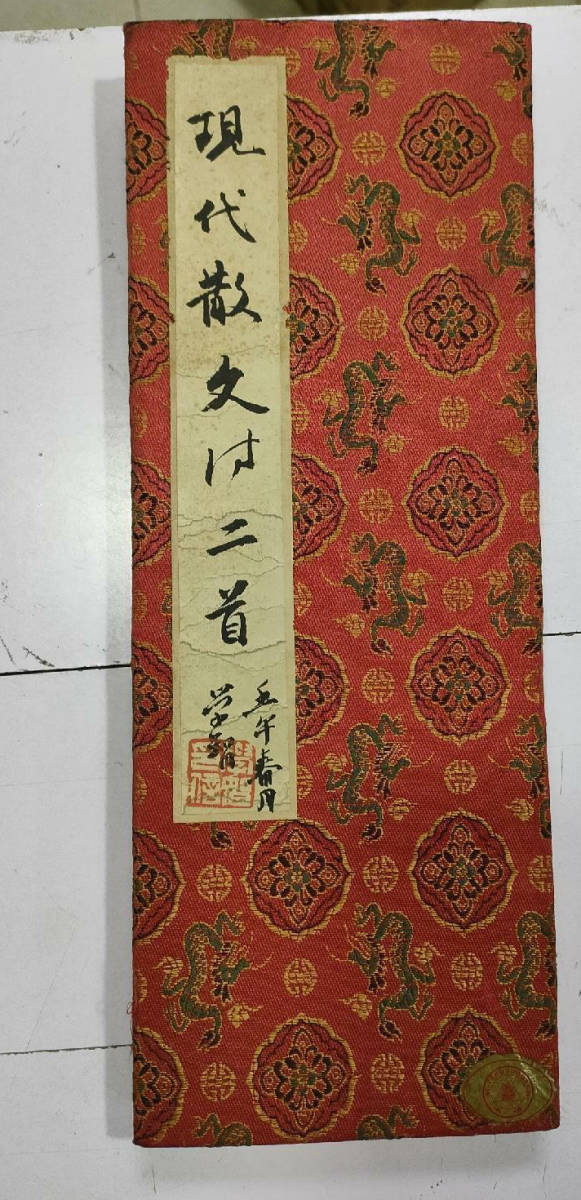 現代散文诗二首
壬午春月
学智